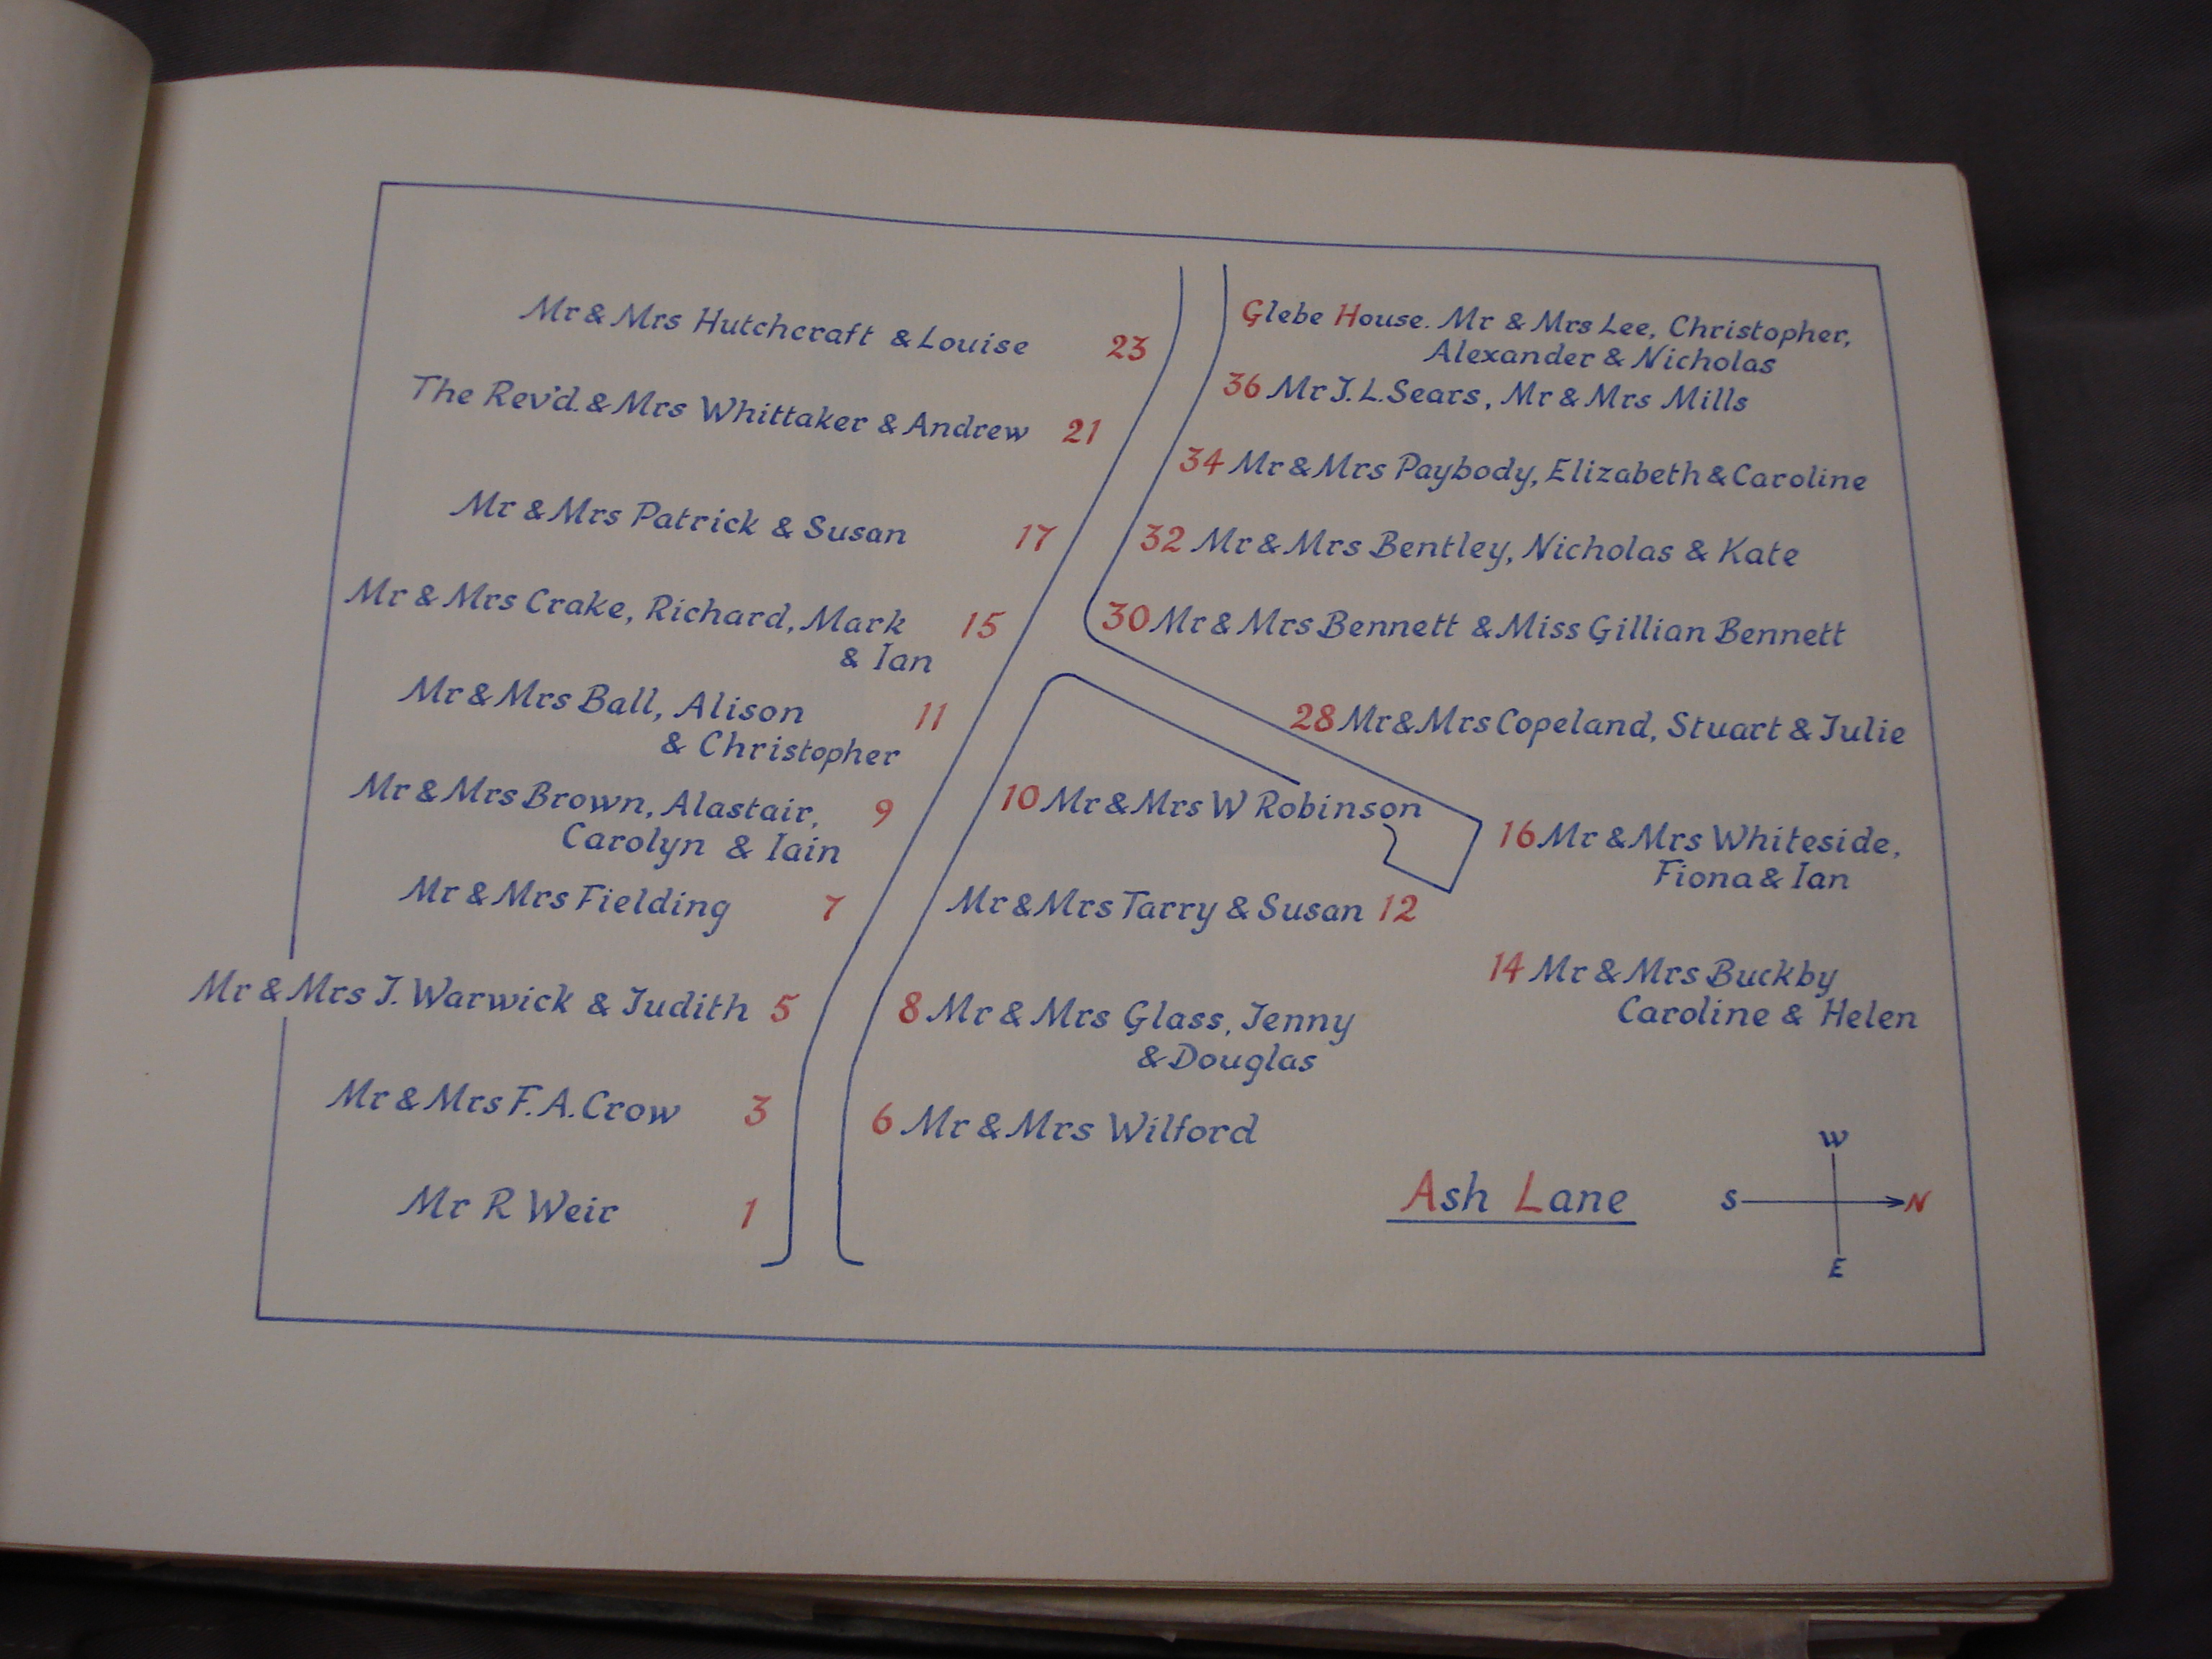 Mr & Mrs Hutchcraft & Louise 23
The Rev'd. & Mrs Whittaker & Andrew 21
Mr & Mrs Patrick & Susan 17
Mr & Mrs Crake, Richard, Mark 15
& Ian
Mr & Mrs Ball, Alison 11
& Christopher
Mr & Mrs Brown, Alastair, 9
Carolyn & Iain
Mr & Mrs Fielding 7
Mr & Mrs J. Warwick & Judith 5
Mr & Mrs F. A. Crow 3
Mr R Weir 1
Glebe House. Mr & Mrs Lee, Christopher,
Alexander & Nicholas
36 Mr J. L. Sears, Mr & Mrs Mills
34 Mr & Mrs Paybody, Elizabeth & Caroline
32 Mr & Mrs Bentley, Nicholas & Kate
30 Mr & Mrs Bennett & Miss Gillian Bennett
28 Mr & Mrs Copeland, Stuart & Julie
10 Mr & Mrs W Robinson
16 Mr & Mrs Whiteside,
Fiona & Ian
Mr & Mrs Tarry & Susan 12
14 Mr & Mrs Buckby
Caroline & Helen
8 Mr & Mrs Glass, Jenny
& Douglas
6 Mr & Mrs Wilford
Ash Lane
W
S N
E